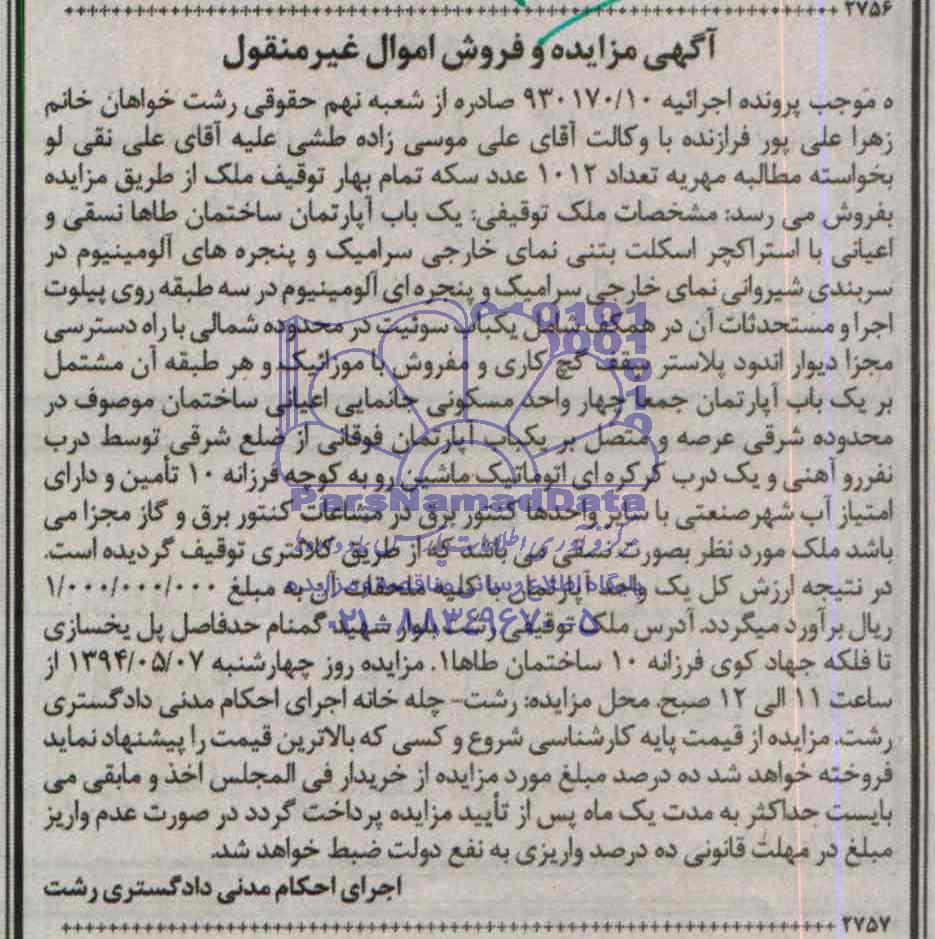 ۲۷۵۶
آگهی مزایده و فروش اموال غیرمنقول
ه موجب پرونده اجرائیه ۹۳۰۱۷۰/۱۰ صادره از شعبه نهم حقوقی رشت خواهان خانم
زهرا علی پور فرازنده با وکالت آقای علی موسی زاده طشی علیه آقای علی نقی لو
بخواسته مطالبه مهریه تعداد ۱۰۱۲ عدد سکه تمام بهار توقیف ملک از طریق مزایده
بفروش می رسد: مشخصات ملک توقیفی: یک باب آپارتمان ساختمان طاها نسقی و
اعیانی با استراکچر اسکلت بتنی نمای خارجی سرامیک و پنجره های آلومینیوم در
سربندی شیروانی نمای خارجی سرامیک و پنجره ای آلومینیوم در سه طبقه روی پیلوت
اجرا و مستحدثات آن در همکف شامل یکباب سوئیت در محدوده شمالی با راه دسترسی
مجزا دیوار اندود پلاستر سقف گچ کاری و مفروش با موزائیک و هر طبقه آن مشتمل
بر یک باب آپارتمان جمعا چهار واحد مسکونی جانمایی اعیانی ساختمان موصوف در
محدوده شرقی عرصه و متصل بر یکباب آپارتمان فوقانی از ضلع شرقی توسط درب
نفررو آهنی و یک درب کرکره ای اتوماتیک ماشین رو به کوچه فرزانه ۱۰ تأمین و دارای
ParsNamadData
امتیاز آب شهرصنعتی با سایر واحدها کنتور برق در مشاعات کنتور برق و گاز مجزا می
باشد ملک مورد نظر بصورت نسقی می باشد که از طریق کلانتری توقیف گردیده است.
پایگاه اطلاع رسانی مناقصه و مزایده
در نتیجه ارزش کل یک واحد آپارتمان با کلیه ملحقات آن به مبلغ ۱/۰۰۰/۰۰۰/۰۰۰
۰۲۱-۸۸۳۴۹۶۷۰-۵
ریال برآورد میگردد. آدرس ملک توقیفی رشت بلوار شهید گمنام حدفاصل پل یخسازی
تا فلکه جهاد کوی فرزانه ۱۰ ساختمان طاها۱. مزایده روز چهارشنبه ۱۳۹۴/۰۵/۰۷ از
ساعت ۱۱ الی ۱۲ صبح. محل مزایده: رشت- چله خانه اجرای احکام مدنی دادگستری
رشت. مزایده از قیمت پایه کارشناسی شروع و کسی که بالاترین قیمت را پیشنهاد نماید
فروخته خواهد شد ده درصد مبلغ مورد مزایده از خریدار فی المجلس اخذ و مابقی می
بایست حداکثر به مدت یک ماه پس از تأیید مزایده پرداخت گردد در صورت عدم واریز
مبلغ در مهلت قانونی ده درصد واریزی به نفع دولت ضبط خواهد شد.
اجرای احکام مدنی دادگستری رشت
۲۷۵۷